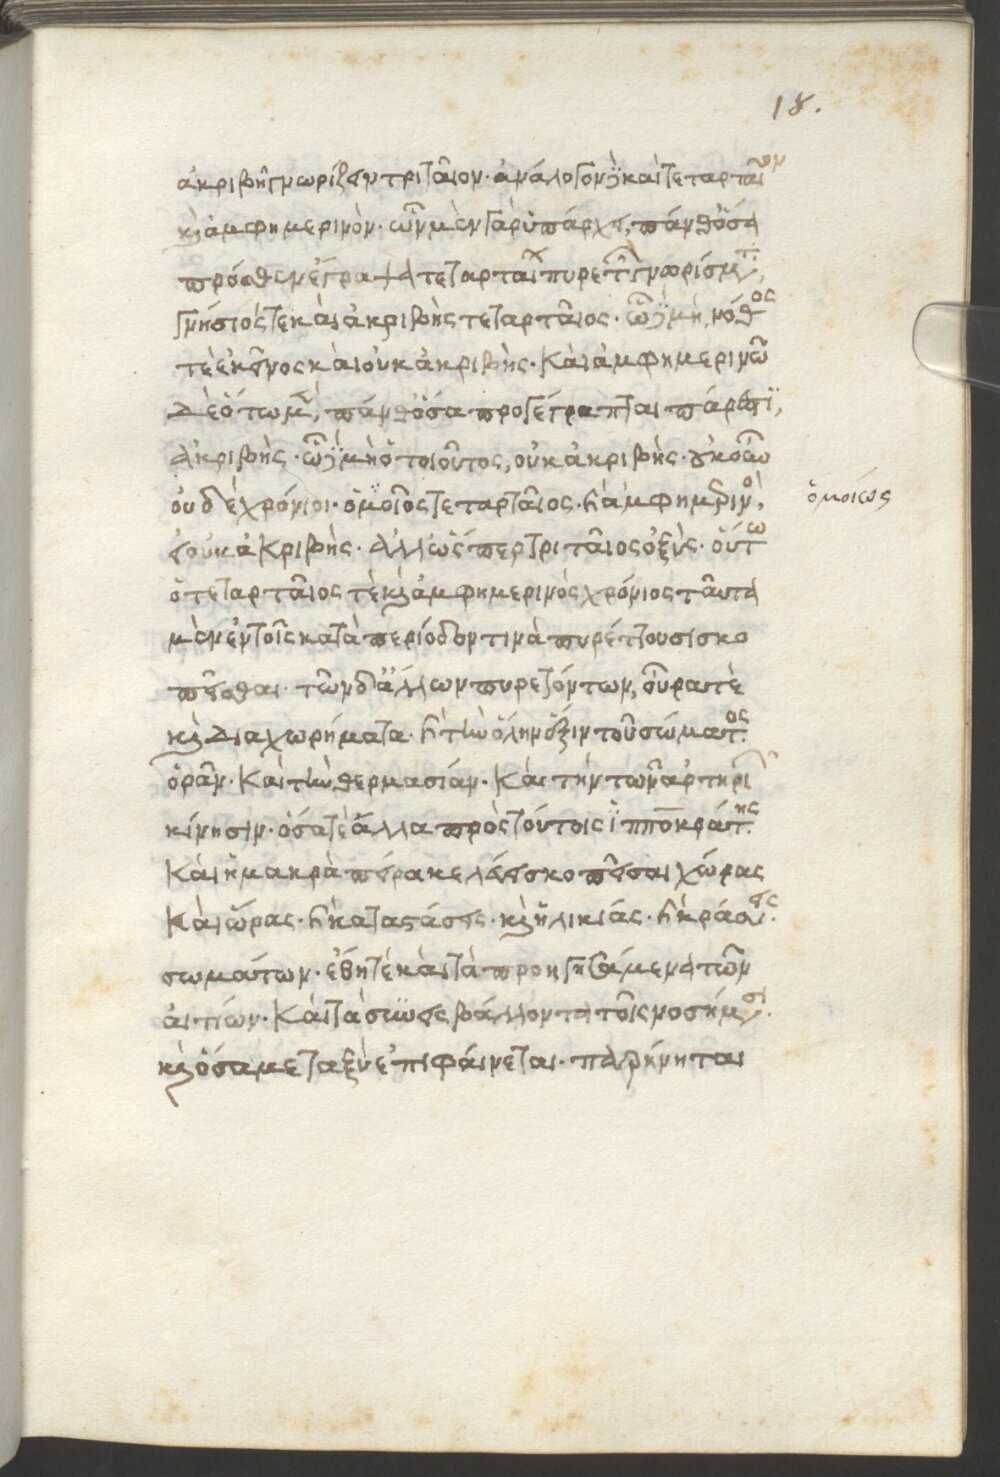 18.
ἀκριβῆ γνωρίζειν τριταῖον· ἀνάλογον δὲ καὶ τεταρταῖον
καὶ ἀμφημερινόν· ᾧ μὲν γὰρ ὑπάρχει πάνθ' ὅσα
πρόσθεν ἔγραψα τεταρταίου πυρετοῦ γνωρίσματα,
γνήσιός τε καὶ ἀκριβὴς τεταρταῖος· ᾧ δὲ μὴ, νόθος
τὲ ἐκεῖνος καὶ οὐκ ἀκριβής· Καὶ ἀμφημερινῶν
δὲ ὅτῳ μὲν, πάνθ' ὅσα προγέγραπται πάρεστι,
ἀκριβής· ᾧ δὲ μὴ ὁ τοιοῦτος, οὐκ ἀκριβής·
οὐδὲ χρόνιοι· ὁμοῖος τεταρταῖος· καὶ ἀμφημερινὸς
ὁμοίως
οὐκ ἀκριβής· ἀλλ' ὥσπερ τριταῖος ὀξὺς· οὕτω
ὁ τεταρταῖος τὲ καὶ ἀμφημερινὸς χρόνιος ταῦτα
μὲν ἐν τοῖς κατὰ περίοδόν τινα πυρέττουσι σκο
πεῖσθαι· τῶν δ' ἄλλων πυρετόντων, οὖρα τὲ
καὶ διαχωρήματα· καὶ τὴν ὅλην ἕξιν τοῦ σώματος
ὁρᾶν· Καὶ τὴν θερμασίαν· Καὶ τὴν τῶν ἀρτηριῶν
κίνησιν· ὅσα τὲ ἄλλα πρὸς τούτοις ἱπποκράτης
Καὶ ἡμᾶς κελεύει σκοπεῖσαι χώρας
Καὶ ὥρας· καὶ καταστάσεις· καὶ ἡλικίας· καὶ κράσεις
σωμάτων· ἔθη τὲ καὶ τὰ προηγησάμενα τῶν
αἰτιῶν· Καὶ τὰ συνεισβάλλοντα τοῖς νοσήμασι
καὶ ὅσα μεταξὺ ἐπιφαίνεται·